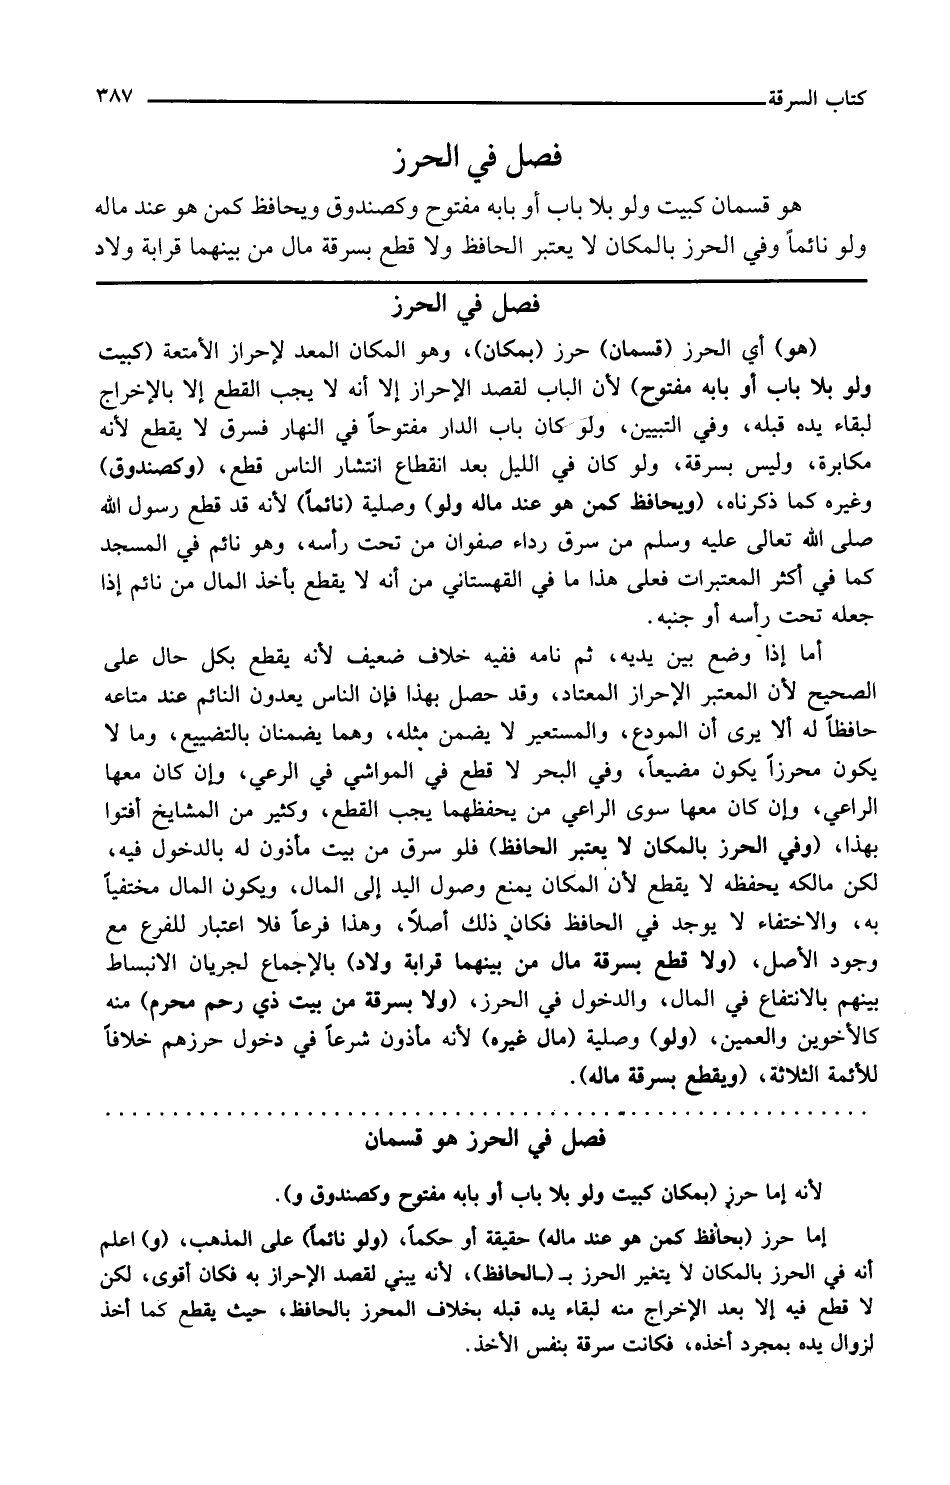 كتاب السرقة ٣٨٧
فصل في الحرز
هو قسمان كبيت ولو بلا باب أو بابه مفتوح وكصندوق وبحافظ كمن هو عند ماله
ولو نائماً وفي الحرز بالمكان لا يعتبر الحافظ ولا قطع بسرقة مال من بينهما قرابة ولاد
فصل في الحرز
(هو) أي الحرز (قسمان) حرز (بمكان)، وهو المكان المعد لإحراز الأمتعة (كبيت
ولو بلا باب أو بابه مفتوح) لأن الباب لقصد الإحراز إلا أنه لا يجب القطع إلا بالإخراج
لبقاء يده قبله، وفي التبيين، ولو كان باب الدار مفتوحاً في النهار فسرق لا يقطع لأنه
مكابرة، وليس بسرقة، ولو كان في الليل بعد انقطاع انتشار الناس قطع، (وكصندوق)
وغيره كما ذكرناه، (وبحافظ كمن هو عند ماله ولو) وصلية (نائماً) لأنه قد قطع رسول الله
صلى الله تعالى عليه وسلم من سرق رداء صفوان من تحت رأسه، وهو نائم في المسجد
كما في أكثر المعتبرات فعلى هذا ما في القهستاني من أنه لا يقطع بأخذ المال من نائم إذا
جعله تحت رأسه أو جنبه.
أما إذا وضع بين يديه، ثم نامه ففيه خلاف ضعيف لأنه يقطع بكل حال على
الصحيح لأن المعتبر الإحراز المعتاد، وقد حصل بهذا فإن الناس يعدون النائم عند متاعه
حافظاً له ألا يرى أن المودع، والمستعير لا يضمن مثله، وهما يضمنان بالتضييع، وما لا
يكون محرزاً يكون مضيعاً، وفي البحر لا قطع في المواشي في الرعي، وإن كان معها
الراعي، وإن كان معها سوى الراعي من يحفظهما يجب القطع، وكثير من المشايخ أفتوا
بهذا، (وفي الحرز بالمكان لا يعتبر الحافظ) فلو سرق من بيت مأذون له بالدخول فيه،
لكن مالكه يحفظه لا يقطع لأن المكان يمنع وصول اليد إلى المال، ويكون المال مختفياً
به، والاختفاء لا يوجد في الحافظ فكان ذلك أصلاً، وهذا فرعاً فلا اعتبار للفرع مع
وجود الأصل، (ولا قطع بسرقة مال من بينهما قرابة ولاد) بالإجماع لجريان الانبساط
بينهم بالانتفاع في المال، والدخول في الحرز، (ولا بسرقة من بيت ذي رحم محرم) منه
كالأخوين والعمين، (ولو) وصلية (مال غيره) لأنه مأذون شرعاً في دخول حرزهم خلافاً
للأئمة الثلاثة، (ويقطع بسرقة ماله).
فصل في الحرز هو قسمان
لأنه إما حرز (بمكان كبيت ولو بلا باب أو بابه مفتوح وكصندوق و).
إما حرز (بحافظ كمن هو عند ماله) حقيقة أو حكماً، (ولو نائماً) على المذهب، (و) اعلم
أنه في الحرز بالمكان لا يتغير الحرز بـ (ـالحافظ)، لأنه يبني لقصد الإحراز به فكان أقوى، لكن
لا قطع فيه إلا بعد الإخراج منه لبقاء يده قبله بخلاف المحرز بالحافظ، حيث يقطع كما أخذ
لزوال يده بمجرد أخذه، فكانت سرقة بنفس الأخذ.